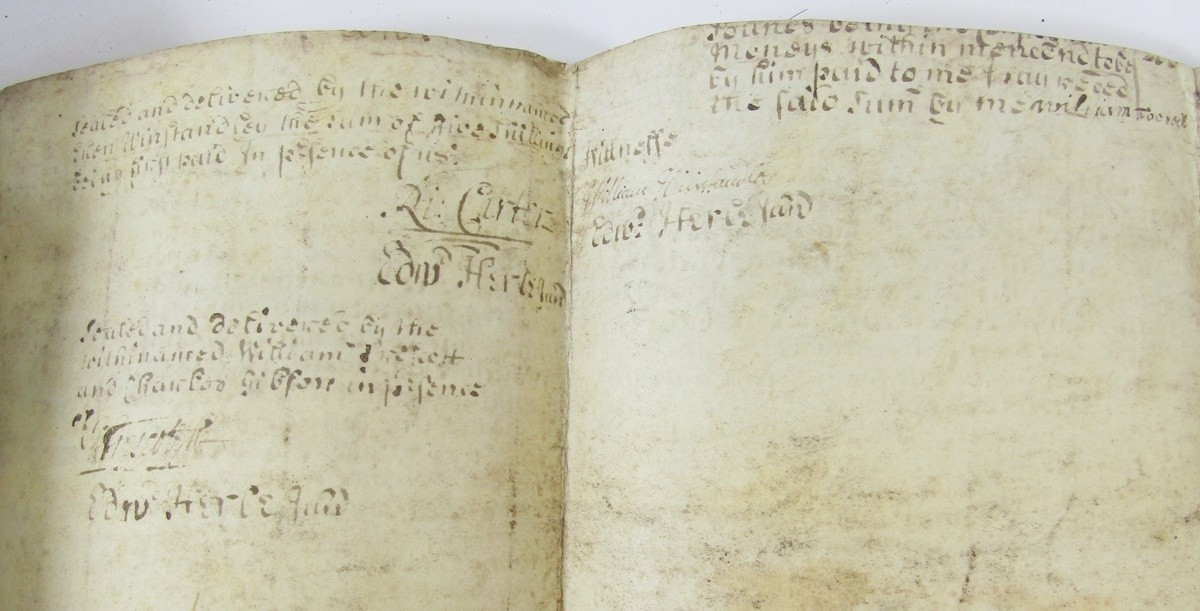 Sealed and delivered by the withinnamed
Ellen Winstandley the sum of five shillings
being first paid In p'sence of us:
Ri: Carter
Edw: Herle
Sealed and delivered by the
withinnamed William
and Charles Gibson in p'sence
of
Edw: Herle
being
moneys within menc̃oned to be
by him paid to me I say rec̃ed
the said sum̃ by me william
Wittnesse
William Winstandley
Edw: Herle